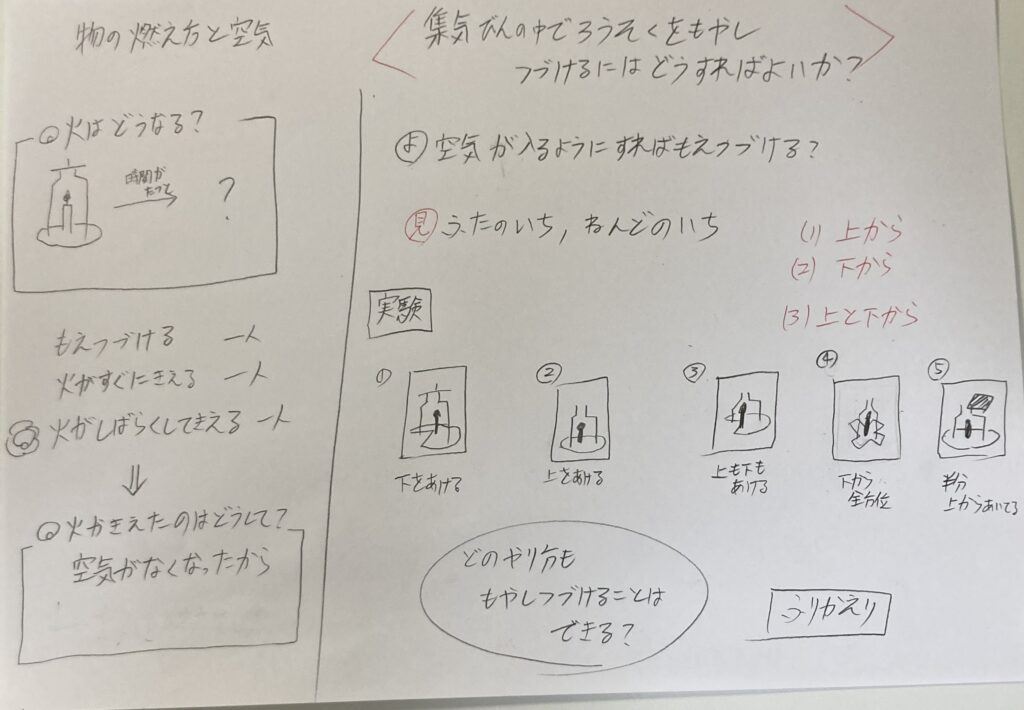 物の燃え方と空気
Q 火はどうなる?
時間が
たつと
?
もえつづける 一人
火がすぐにきえる 一人
火がしばらくしてきえる 一人
Q 火がきえたのはどうして?
空気がなくなったから
集気びんの中でろうそくをもやし
つづけるにはどうすればよいか?
よ 空気が入るようにすればもえつづける?
見 ふたのいち, ねんどのいち
(1) 上から
(2) 下から
(3) 上と下から
実験
① ② ③ ④ ⑤
下をあける
上をあける
上も下も
あける
下から
全方位
半分
上からあいてる
どのやり方も
もやしつづけることは
できる?
ふりかえり